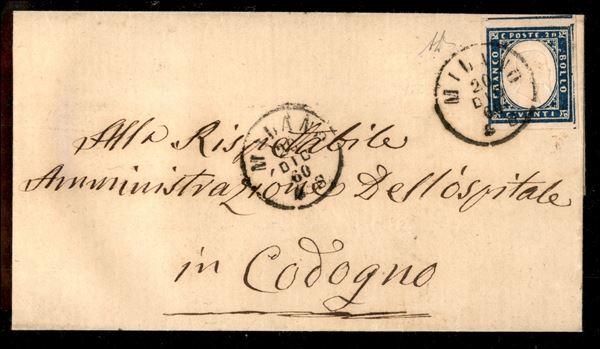 C POSTE. 20
FRANCO
BOLLO
VENTI
MILANO
20
DIC
MILANO
DIC
60
Alla Rispettabile
Amministrazione Dell'Ospitale
in Codogno